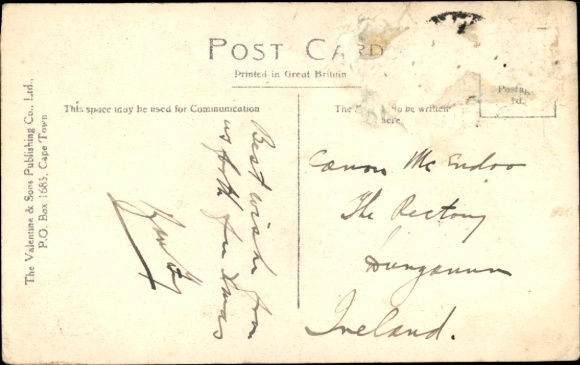 POST CARD
Printed in Great Britain
The Valentine & Sons Publishing Co., Ltd.,
P.O. Box 1685, Cape Town
This space may be used for Communication
The to be written
here.
Postag
rd.
Best wishes from
us both for Xmas
Canon McEndoo
The Rectory
Dungannon
Ireland.